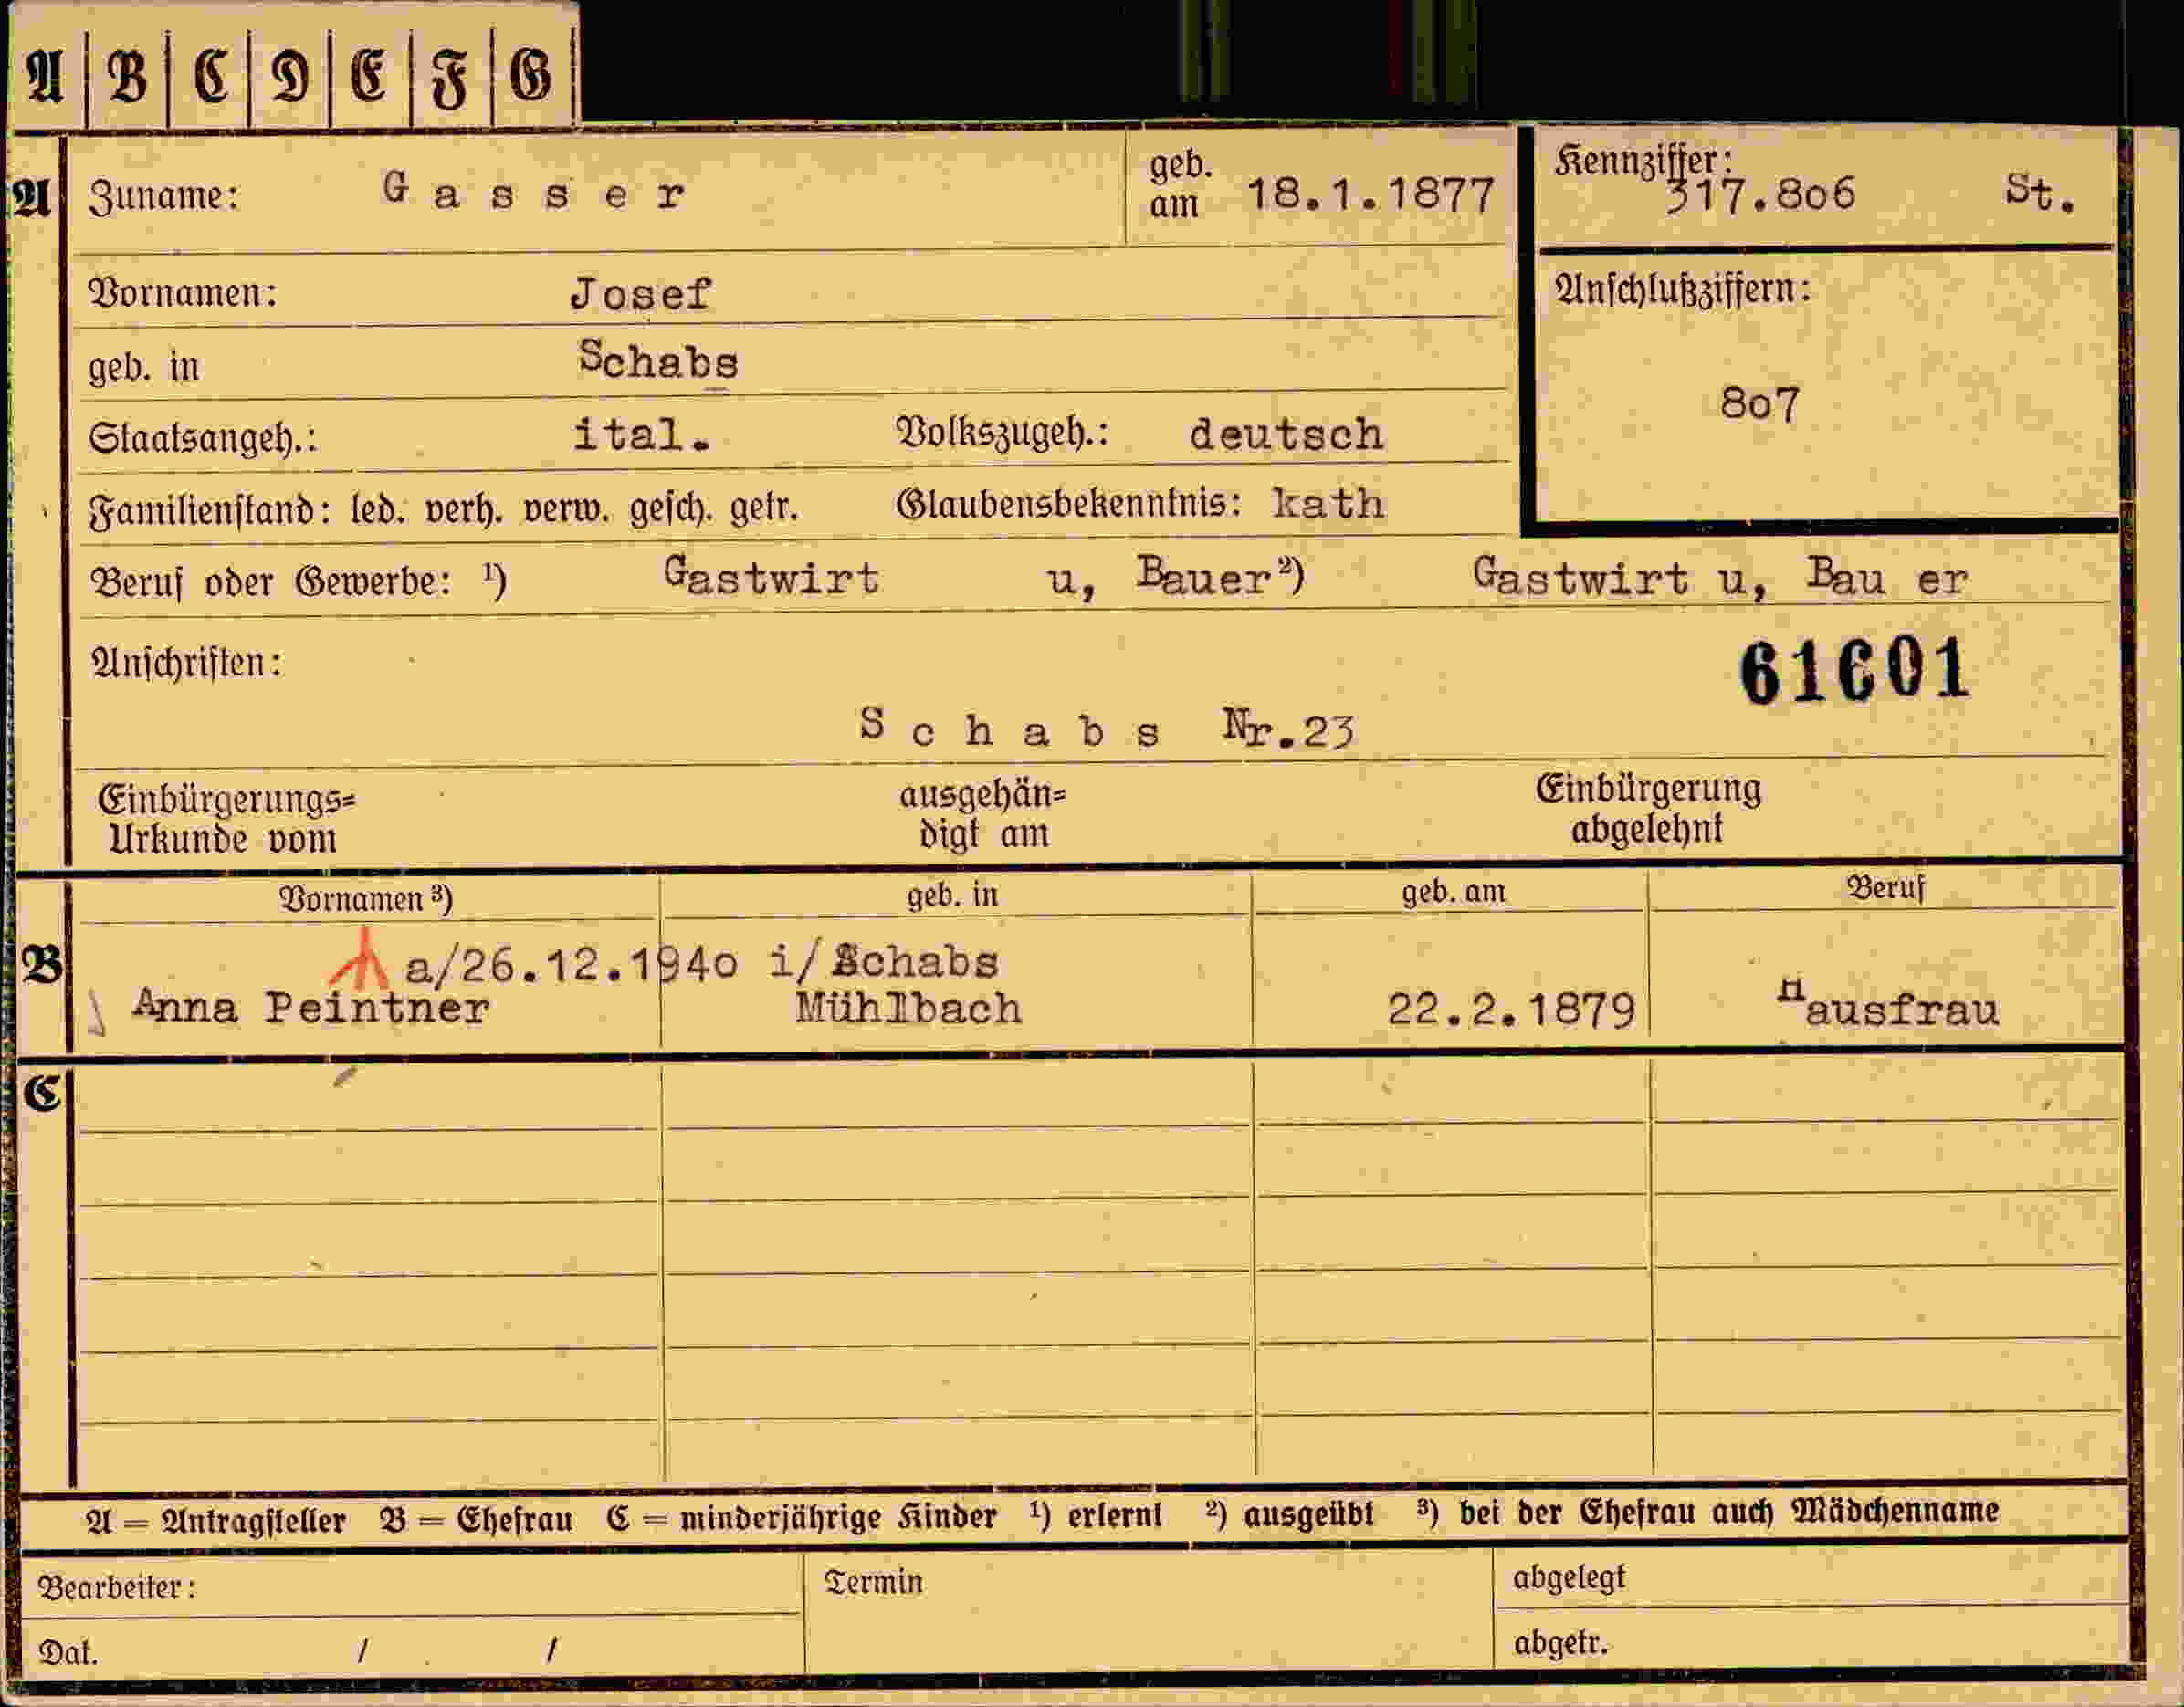 A B C D E F G
A Zuname: Gasser geb. am 18.1.1877 Kennziffer: 317.806 St.
Vornamen: Josef Anschlußziffern:
geb. in Schabs
807
Staatsangeh.: ital. Volkszugeh.: deutsch
Familienstand: led. verh. verw. gesch. getr. Glaubensbekenntnis: kath
Beruf oder Gewerbe: ¹) Gastwirt u, Bauer ²) Gastwirt u, Bau er
Anschriften: 61601
Schabs Nr.23
Einbürgerungs= ausgehän= Einbürgerung
Urkunde vom digt am abgelehnt
Vornamen ³) geb. in geb. am Beruf
B a/26.12.1940 i/Schabs
Anna Peintner Mühlbach 22.2.1879 Hausfrau
C
A = Antragsteller B = Ehefrau C = minderjährige Kinder ¹) erlernt ²) ausgeübt ³) bei der Ehefrau auch Mädchenname
Bearbeiter: Termin abgelegt
Dat. / / abgetr.